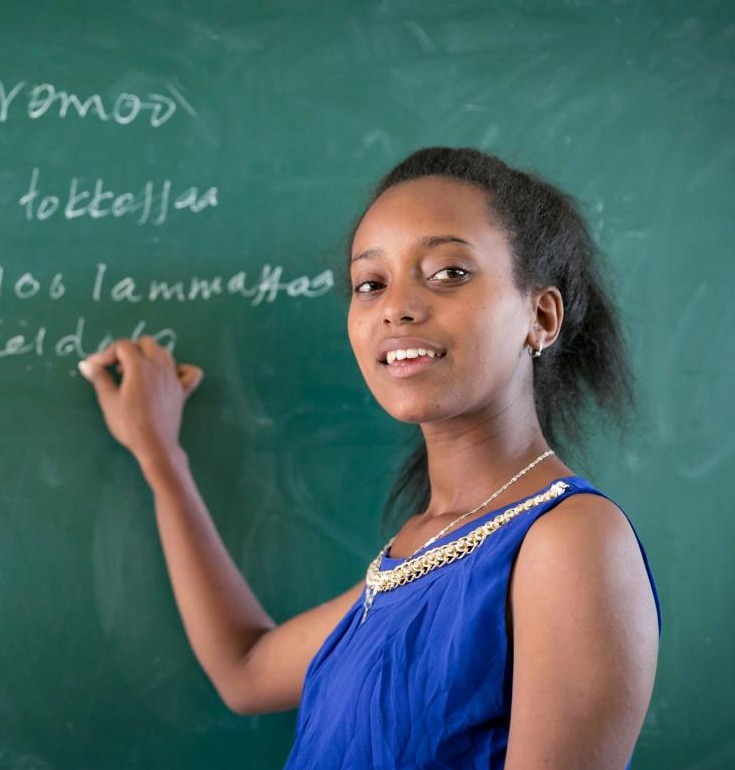 romoo
tokkoffaa
loo lammaffaa